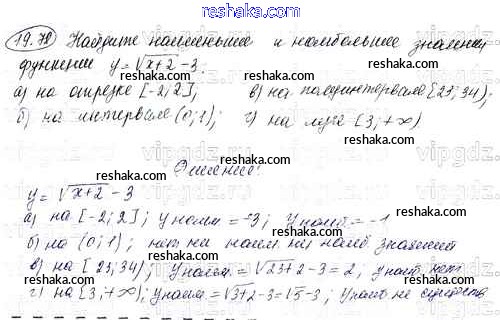 www.reshaka.com
19.78 Найдите наименьшее и наибольшее значения
функции y = √x+2 - 3:
reshaka.com reshaka.com
а) на отрезке [-2; 2]; в) на полуинтервале [23; 34);
б) на интервале (0; 1); г) на луче [3; +∞)
reshaka.com reshaka.com
Решение:
reshaka.com
y = √x+2 - 3
reshaka.com reshaka.com
а) на [-2; 2]; y наим = -3; y наиб = -1
б) на (0; 1); нет ни наим ни наиб значений
reshaka.com reshaka.com
в) на [23; 34); y наим = √23+2 - 3 = 2, y наиб нет
г) на [3; +∞); y наим = √3+2 - 3 = √5 - 3; y наиб не
reshaka.com